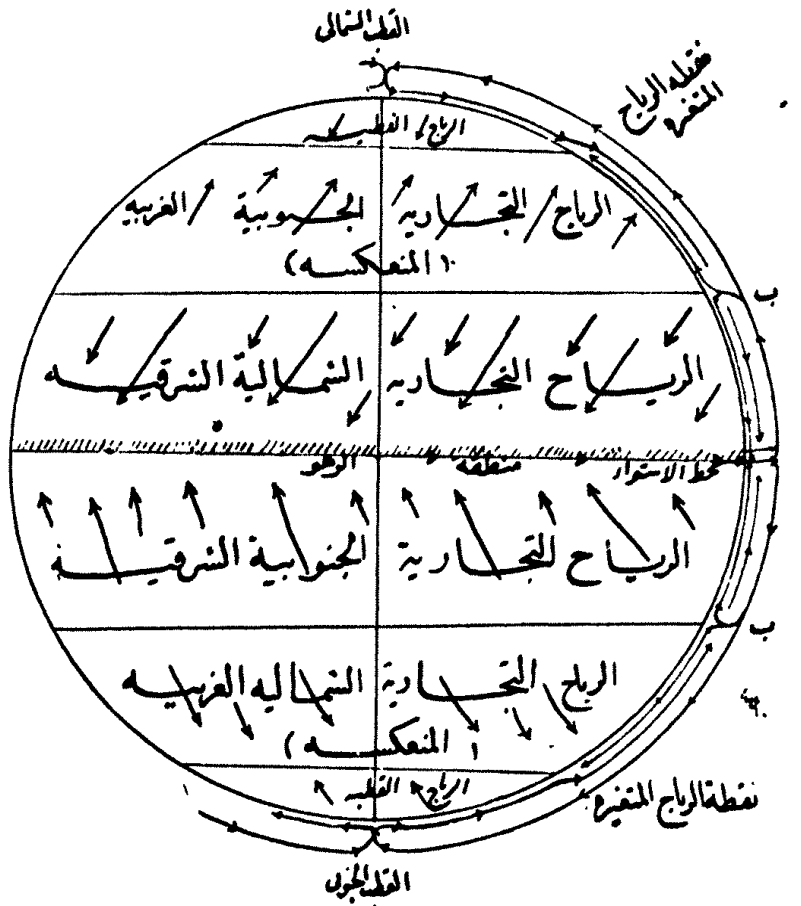 القطب الشمالى
نقطه الرياح
المتغيره
الرياح القطبيه
الرياح التجاريه الجنوبية الغربيه
( المنعكسه )
ب
الرياح التجاريه الشمالية الشرقيه
خط الاستواء منطقة الرهو
الرياح التجارية الجنوبية الشرقيه
ب
الرياح التجارية الشماليه الغربيه
( المنعكسه )
الرياح القطبيه
نقطة الرياح المتغيره
القطب الجنوبى